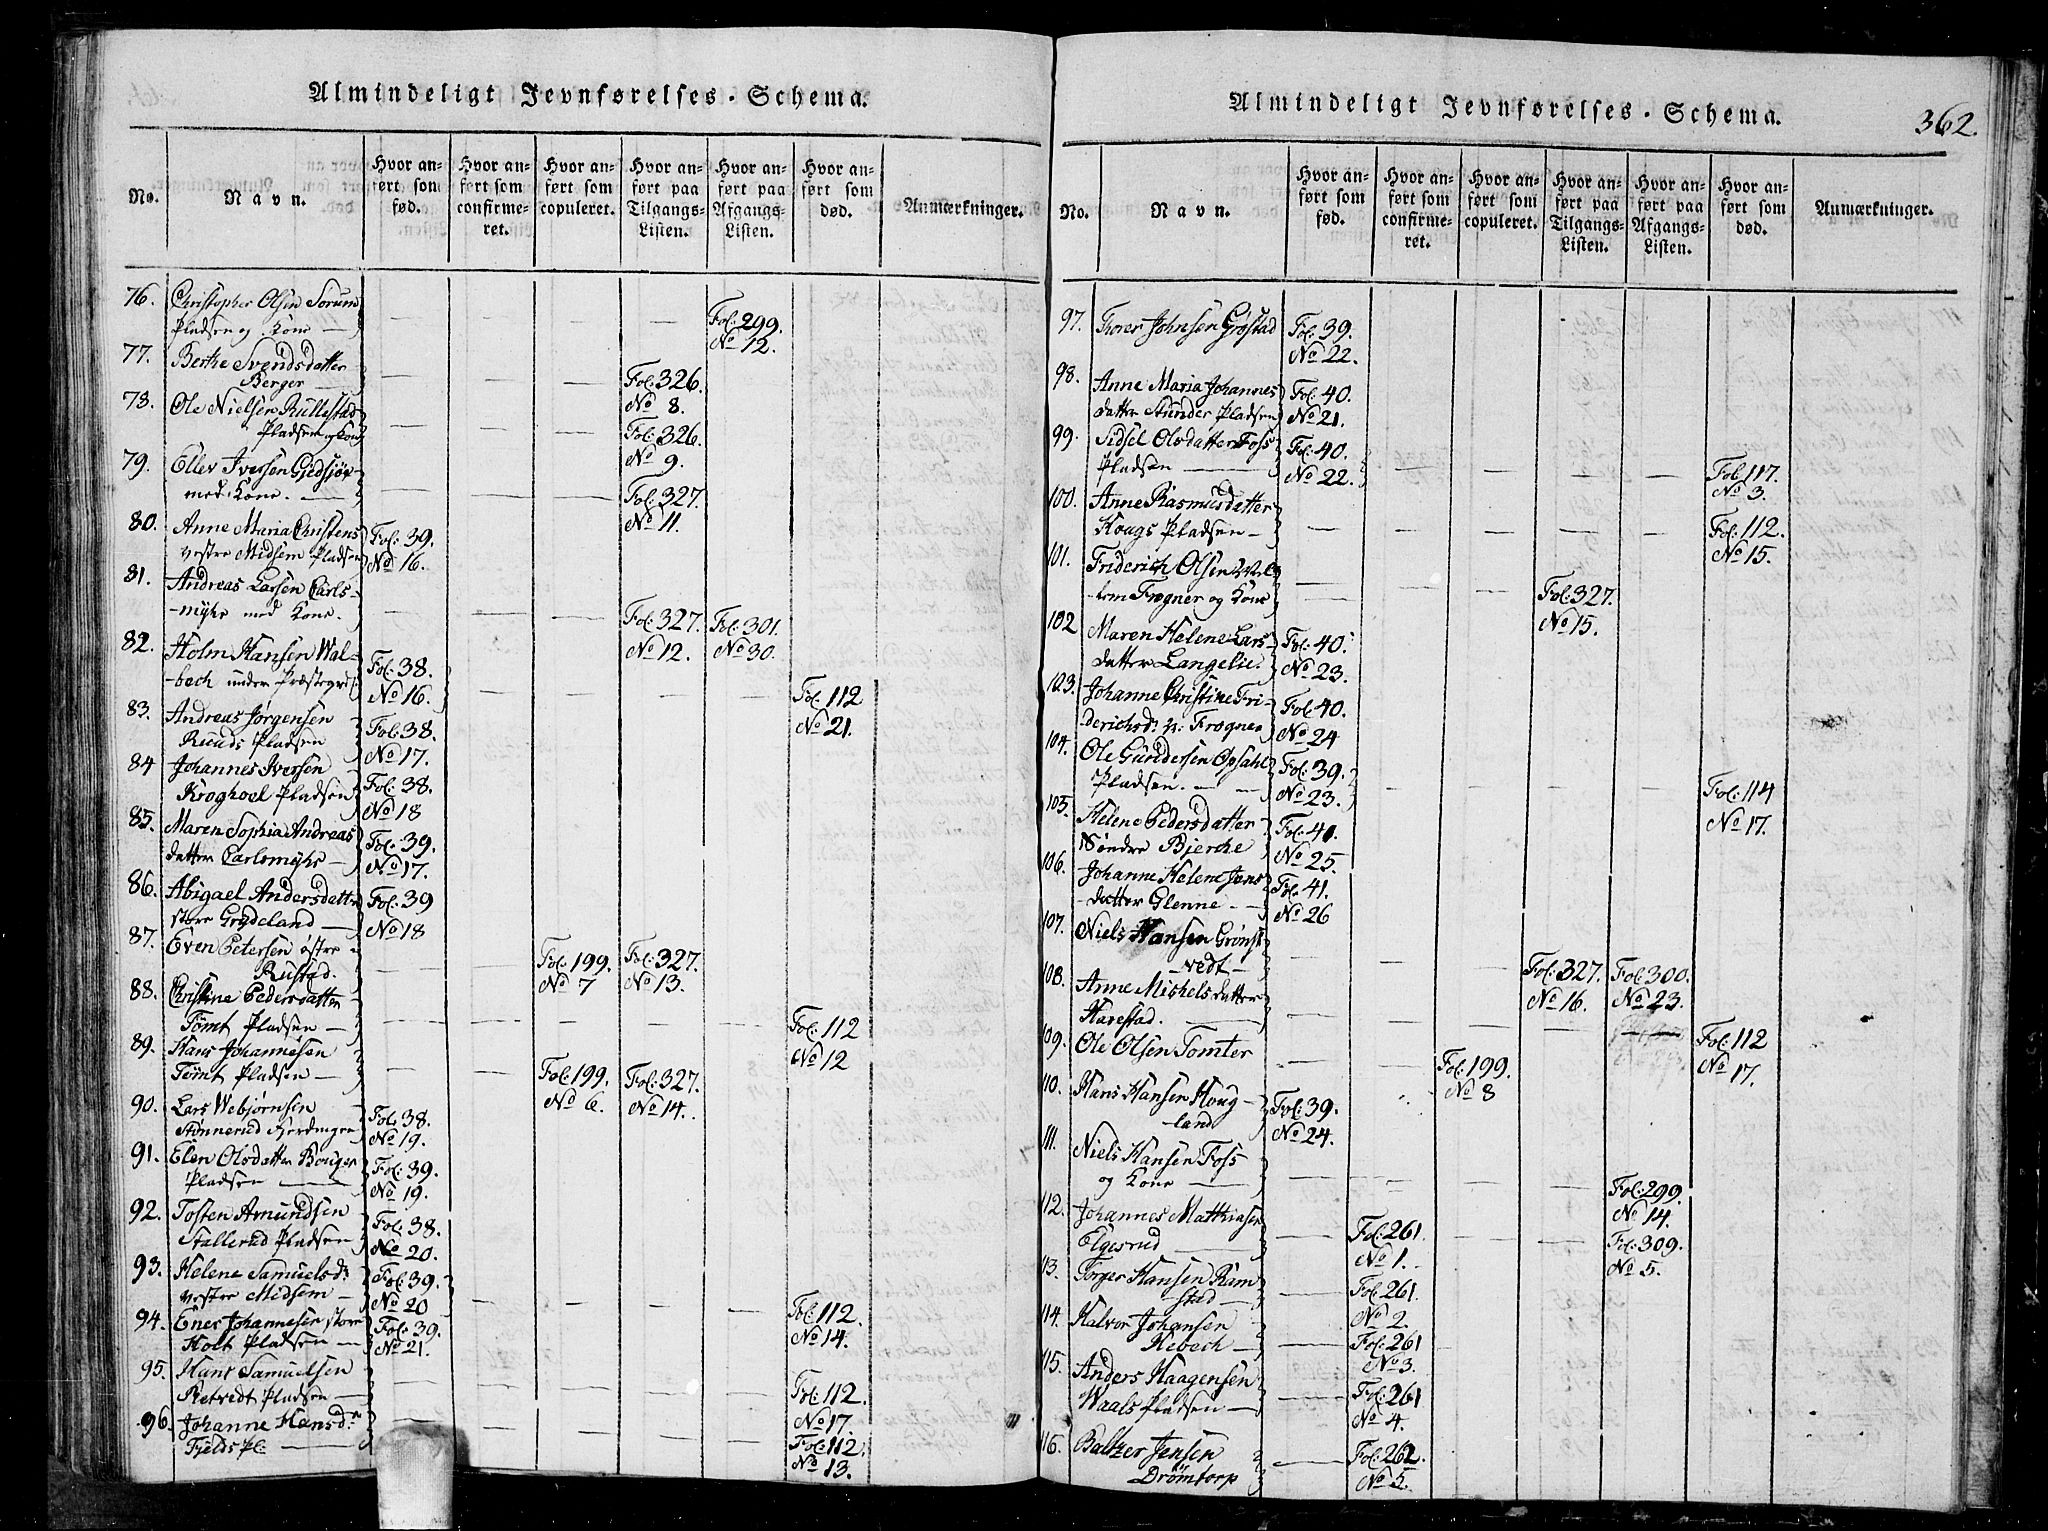 Almindeligt Jevnførelses-Schema.
No.
Navn.
Hvor anført som fød.
Hvor anført som confirmeret.
Hvor anført som copuleret.
Hvor anført paa Tilgangs-Listen.
Hvor anført paa Afgangs-Listen.
Hvor anført som død.
Anmærkninger.
76. Christopher Olsen Sorum
Pladsen og Kone — Fol: 299.
No 12.
77. Berthe Svendsdatter
Berger — Fol: 326.
No 8.
78. Ole Nielsen Rullestad
Pladsen og Kone Fol: 326.
No 9.
79. Ellev Iversen Gjedsjøe
med Kone. — Fol: 327.
No 11.
80. Anne Maria Christens Fol: 39.
vestre Midsem Pladsen No 16.
81. Andreas Larsen Carls-
-myhr med Kone. Fol: 327. Fol: 301.
No 12. No 30.
82. Holm Hansen Wal- Fol: 38.
-bech under Præstegrd. No 16. Fol: 112
No 21.
83. Andreas Jørgensen Fol: 38.
Ruuds Pladsen No 17.
84 Johannes Iversen Fol: 38.
Kroghoel Pladsen No 18
85. Maren Sophia Andreas Fol: 39.
datter Carlsmyhr — No 17.
86. Abigael Andersdatter Fol: 39
store Grydeland — No 18
87. Even Petersen østre
Rustad. Fol: 199. Fol: 327.
No 7 No 13.
88. Christine Pedersdatter
Tømt Pladsen — Fol: 112
No 12
89. Hans Johannesen
Tømt Pladsen — Fol: 199. Fol: 327.
No 6. No 14.
90. Lars Webjørnsen Fol: 38.
Stønnerud Fjerdingen No 19.
91. Elen Olsdatter Bonger Fol: 39.
Pladsen — No 19.
92. Tosten Amundsen Fol: 38.
Stallerud Pladsen No 20.
93. Helene Samuelsdr Fol: 39.
vestre Midsem — No 20 Fol: 112.
No 14.
94. Ener Johannesen store Fol: 39.
Holt Pladsen — No 21.
95. Hans Samuelsen
Retvedt Pladsen — Fol: 112.
No 17.
96. Johanne Hansdr
Fjelds Pl. — Fol: 112.
No 13.
Almindeligt Jevnførelses-Schema. 362.
No.
Navn.
Hvor anført som fød.
Hvor anført som confirmeret.
Hvor anført som copuleret.
Hvor anført paa Tilgangs-Listen.
Hvor anført paa Afgangs-Listen.
Hvor anført som død.
Anmærkninger.
97. Thorer Johnsen Grøstad Fol: 39.
No 22.
98. Anne Maria Johannes Fol: 40.
datter Stunder Pladsen No 21.
99. Sidsel Olsdatter Foss Fol: 40.
Pladsen — No 22. Fol: 117.
No 3.
100. Anne Rasmusdatter
Hougs Pladsen — Fol: 112.
No 15.
101. Friderich Olsen Vel-
-tom Frogner og Kone Fol: 327.
No 15.
102 Maren Helene Lars- Fol: 40.
datter Langelie. No 23.
103. Johanne Christine Fri- Fol: 40.
derichsdr v: Frogner No 24
104. Ole Gundersen Opsahl Fol: 39.
Pladsen. — No 23. Fol: 114
No 17.
105. Helene Pedersdatter Fol: 41.
Søndre Bjerche No 25.
106. Johanne Helene Jens Fol: 41.
-datter Glenne — No 26
107. Niels Hansen Grønst
-vedt — Fol: 327. Fol: 300.
No 16. No 23.
108. Anne Mishelsdatter
Harestad. — Fol: 112
No 17.
109. Ole Olsen Tomter Fol: 199.
No 8
110. Hans Hansen Houg- Fol: 39.
land No 24.
111. Niels Hansen Foss
og Kone — Fol: 299.
No 14.
112. Johannes Matthiasen Fol: 261.
Elgesrud — No 1. Fol: 309.
No 5.
113. Torger Hansen Ram Fol: 261.
-stad — No 2.
114. Halvor Johansen Fol: 261
Hebech — No 3.
115. Anders Haagensen Fol: 261
Waals Pladsen — No 4.
116. Baltzer Jensen Fol: 262.
Drömtorp No 5.